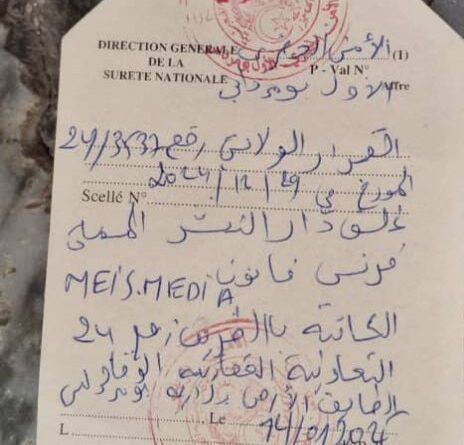 DIRECTION GENERALE
DE LA
SURETE NATIONALE
الأمن الحضري (1)
P - Val N°
الاول بومرداس
القرار الولائي رقم 24/3537
المؤرخ في 2024/12/29
Scellé N°
غلق دار النشر المسماة
فرنس فانون
MEIS.MEDIA
الكائنة بـ القطعة رقم 24
التعاونية العقارية
الطابق الأرضي بومرداس
L Le 14/01/2025